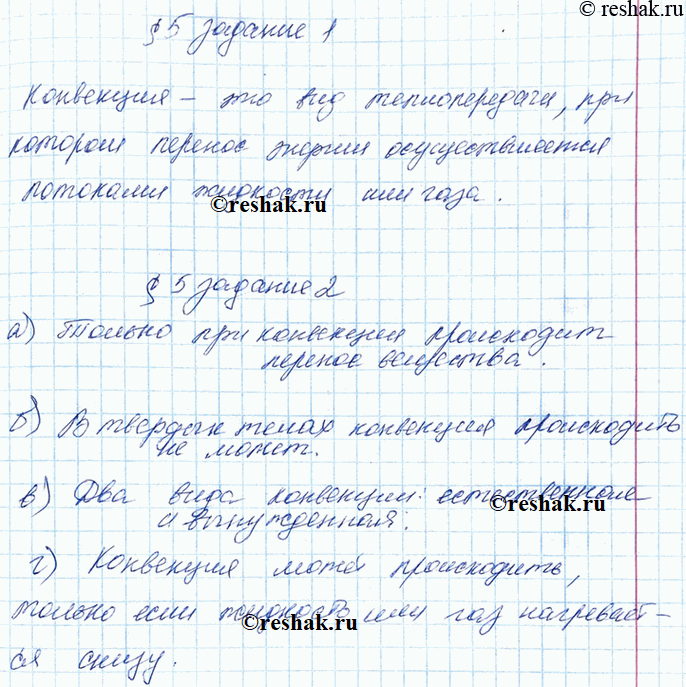 © reshak.ru
§ 5 задание 1
Конвекция – это вид теплопередачи, при
котором перенос энергии осуществляется
потоками жидкости или газа.
©reshak.ru
§ 5 задание 2
а) Только при конвекции происходит
перенос вещества.
б) В твердых телах конвекция происходить
не может.
в) Два вида конвекции: естественная
и вынужденная.
©reshak.ru
г) Конвекция може происходить,
только если жидкость или газ нагревает-
©reshak.ru
ся снизу.